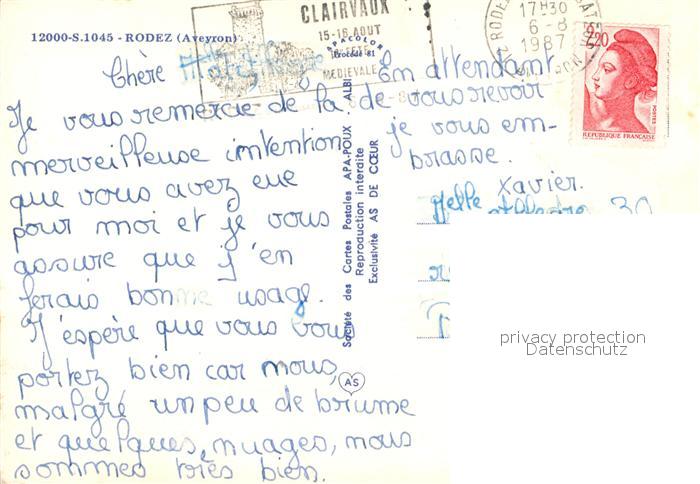 12000-S.1045 - RODEZ (Aveyron)
CLAIRVAUX
15-16 AOUT
FETE
MEDIEVALE
APACOLOR
Procédé 81
RODEZ
17H30
6-8
1987
2,20
POSTES
REPUBLIQUE FRANÇAISE
Chère
Je vous remercie de la
merveilleuse intention
que vous avez eue
pour moi et je vous
assure que j'en
ferais bonne usage.
J'espère que vous vous
portez bien car nous,
malgré un peu de brume
et quelques nuages, nous
sommes très bien.
En attendant
de vous revoir
je vous em-
brasse.
Xavier.
Société des Cartes Postales APA-POUX ALBI
Reproduction interdite
Exclusivité AS DE CŒUR
AS
Melle
30
privacy protection
Datenschutz